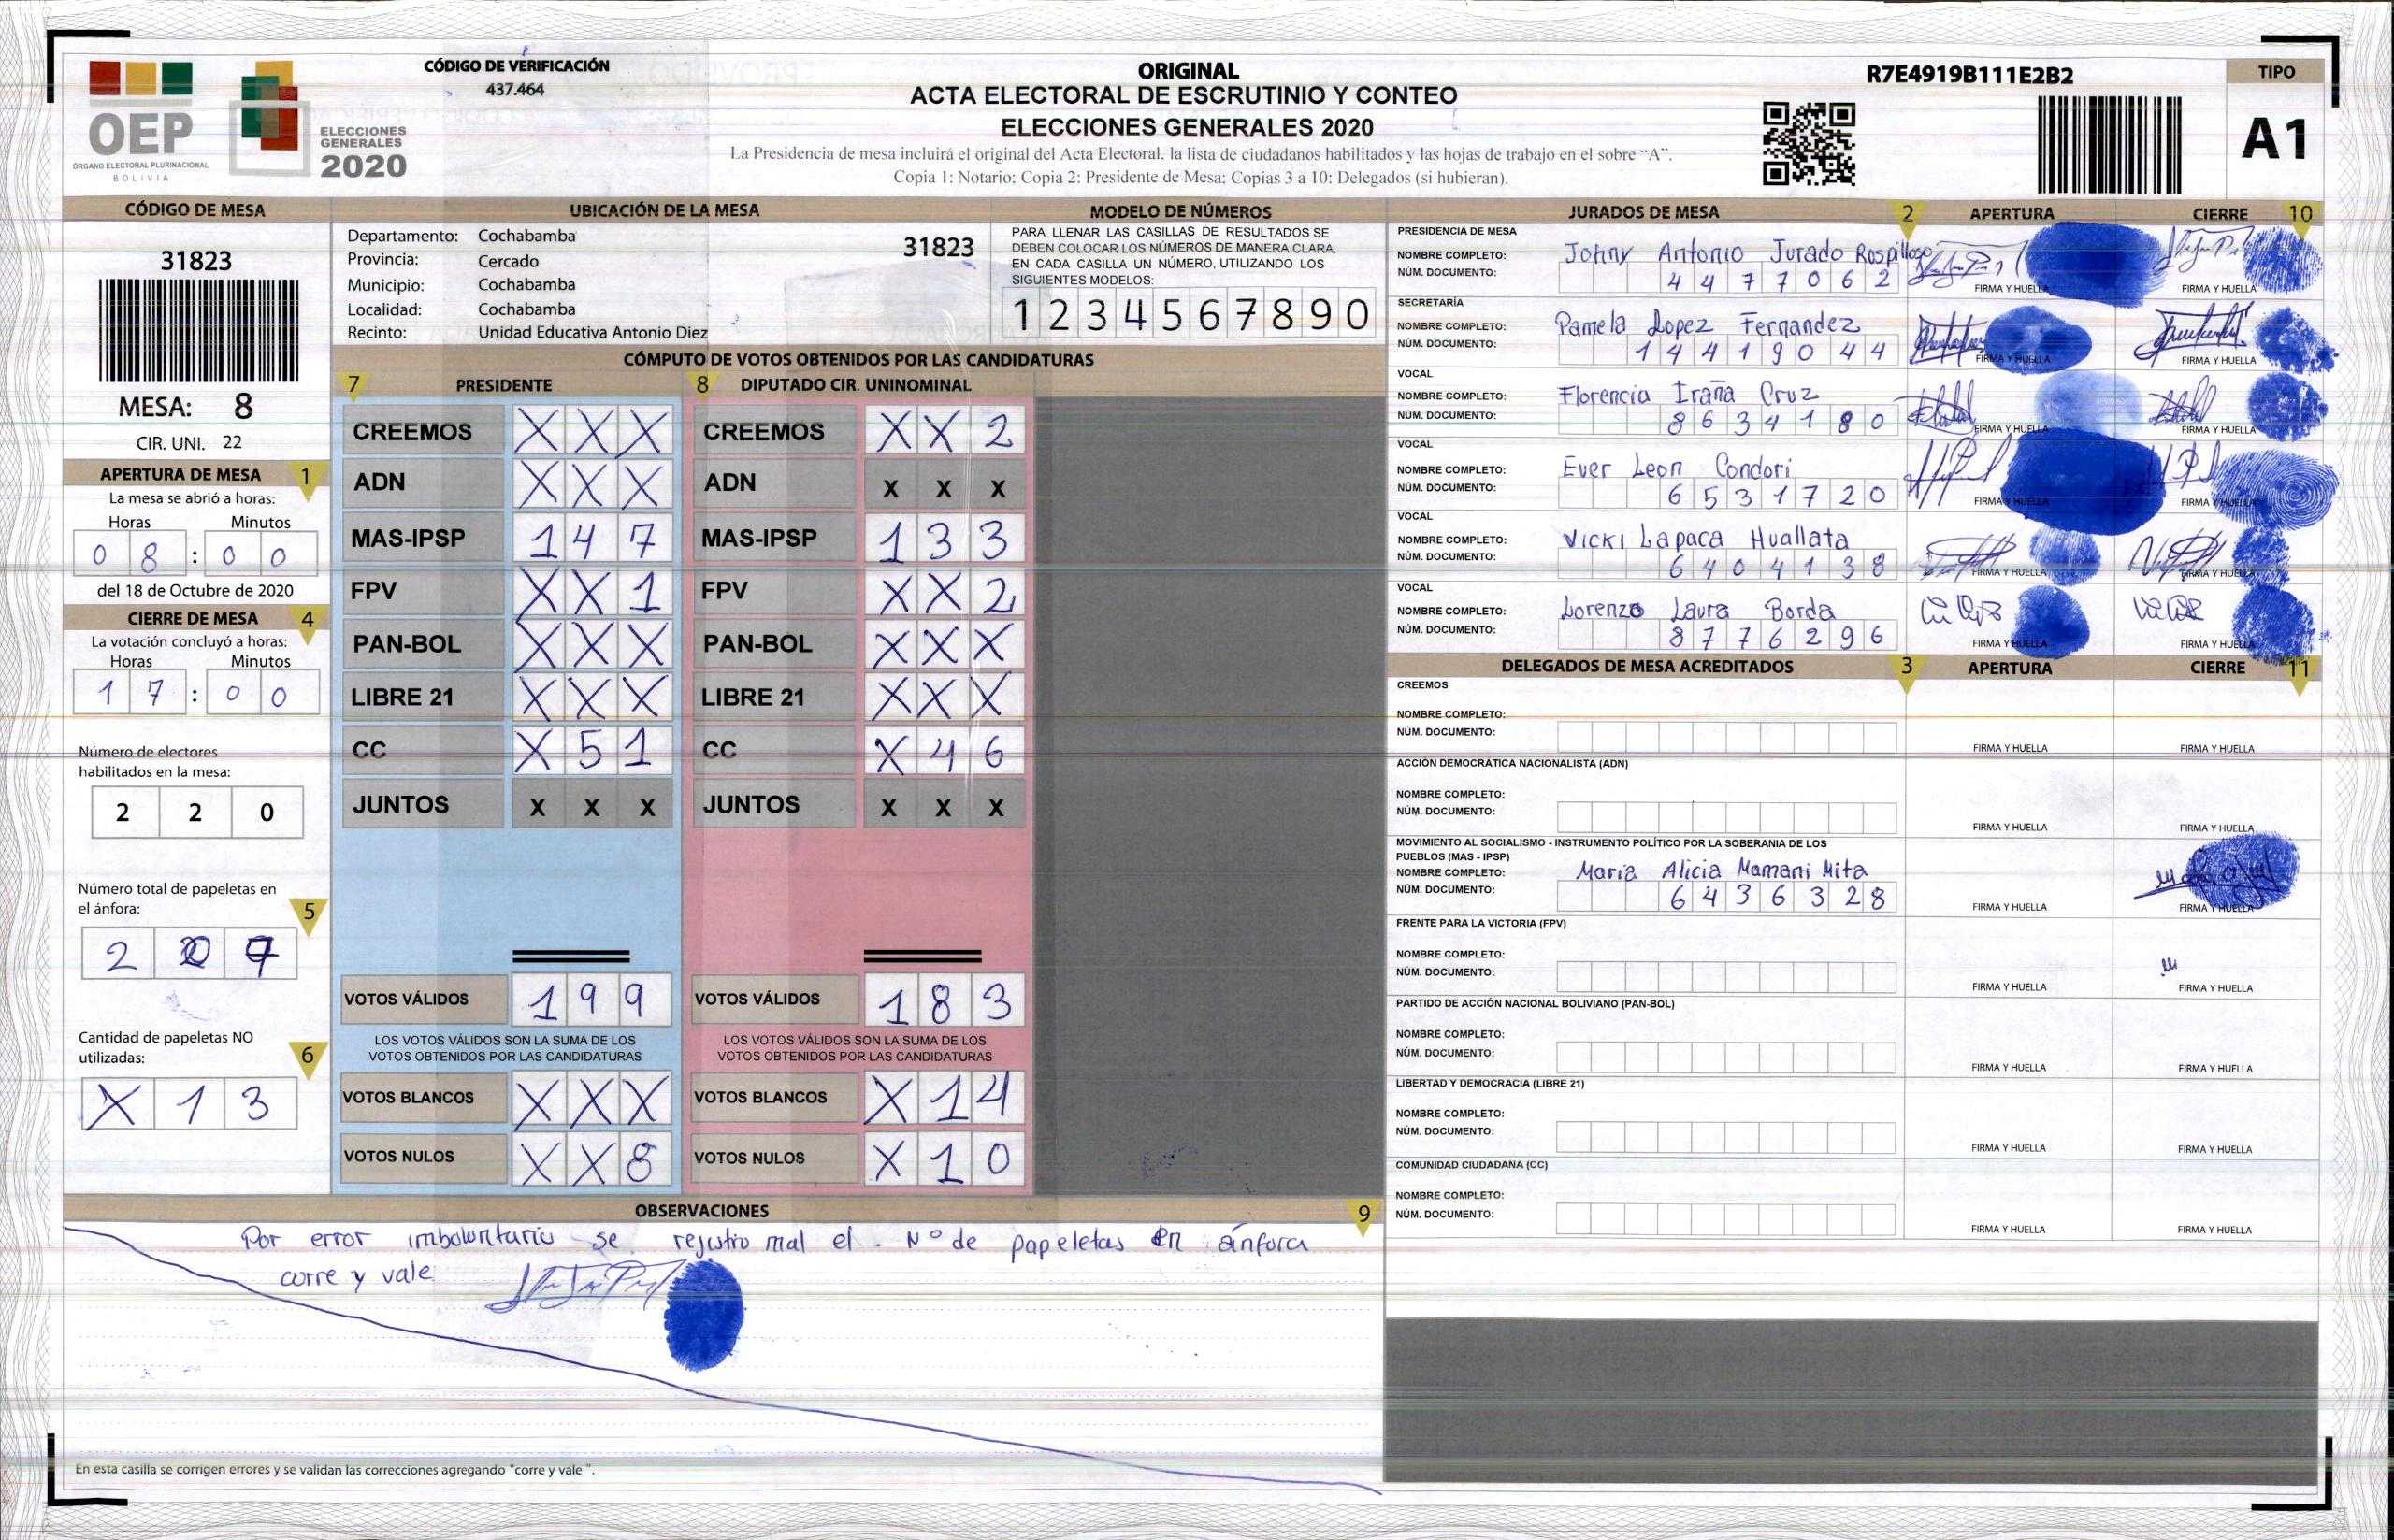 CÓDIGO DE VERIFICACIÓN
437.464
OEP
ÓRGANO ELECTORAL PLURINACIONAL
BOLIVIA
ELECCIONES
GENERALES
2020
ORIGINAL
ACTA ELECTORAL DE ESCRUTINIO Y CONTEO
ELECCIONES GENERALES 2020
La Presidencia de mesa incluirá el original del Acta Electoral, la lista de ciudadanos habilitados y las hojas de trabajo en el sobre "A".
Copia 1: Notario; Copia 2: Presidente de Mesa; Copias 3 a 10: Delegados (si hubieran).
R7E4919B111E2B2
TIPO
A1
CÓDIGO DE MESA
31823
MESA: 8
CIR. UNI. 22
APERTURA DE MESA 1
La mesa se abrió a horas:
Horas Minutos
0 8 : 0 0
del 18 de Octubre de 2020
CIERRE DE MESA 4
La votación concluyó a horas:
Horas Minutos
1 7 : 0 0
Número de electores
habilitados en la mesa:
2 2 0
Número total de papeletas en
el ánfora: 5
2 0 7
Cantidad de papeletas NO
utilizadas: 6
X 1 3
UBICACIÓN DE LA MESA
Departamento: Cochabamba
Provincia: Cercado
Municipio: Cochabamba
Localidad: Cochabamba
Recinto: Unidad Educativa Antonio Diez
31823
MODELO DE NÚMEROS
PARA LLENAR LAS CASILLAS DE RESULTADOS SE
DEBEN COLOCAR LOS NÚMEROS DE MANERA CLARA.
EN CADA CASILLA UN NÚMERO, UTILIZANDO LOS
SIGUIENTES MODELOS:
1 2 3 4 5 6 7 8 9 0
CÓMPUTO DE VOTOS OBTENIDOS POR LAS CANDIDATURAS
7 PRESIDENTE
CREEMOS X X X
ADN X X X
MAS-IPSP 1 4 7
FPV X X 1
PAN-BOL X X X
LIBRE 21 X X X
CC X 5 1
JUNTOS X X X
VOTOS VÁLIDOS 1 9 9
LOS VOTOS VÁLIDOS SON LA SUMA DE LOS
VOTOS OBTENIDOS POR LAS CANDIDATURAS
VOTOS BLANCOS X X X
VOTOS NULOS X X 8
8 DIPUTADO CIR. UNINOMINAL
CREEMOS X X 2
ADN X X X
MAS-IPSP 1 3 3
FPV X X 2
PAN-BOL X X X
LIBRE 21 X X X
CC X 4 6
JUNTOS X X X
VOTOS VÁLIDOS 1 8 3
LOS VOTOS VÁLIDOS SON LA SUMA DE LOS
VOTOS OBTENIDOS POR LAS CANDIDATURAS
VOTOS BLANCOS X 1 4
VOTOS NULOS X 1 0
OBSERVACIONES 9
Por error imboluntario se rejistro mal el Nº de papeletas en ánfora
corre y vale
En esta casilla se corrigen errores y se validan las correcciones agregando "corre y vale ".
JURADOS DE MESA 2 APERTURA CIERRE 10
PRESIDENCIA DE MESA
NOMBRE COMPLETO: Johny Antonio Jurado Rospilloso
NÚM. DOCUMENTO: 4 4 7 7 0 6 2
FIRMA Y HUELLA FIRMA Y HUELLA
SECRETARÍA
NOMBRE COMPLETO: Pamela Lopez Fernandez
NÚM. DOCUMENTO: 1 4 4 1 9 0 4 4
FIRMA Y HUELLA FIRMA Y HUELLA
VOCAL
NOMBRE COMPLETO: Florencia Iraña Cruz
NÚM. DOCUMENTO: 8 6 3 4 1 8 0
FIRMA Y HUELLA FIRMA Y HUELLA
VOCAL
NOMBRE COMPLETO: Ever Leon Condori
NÚM. DOCUMENTO: 6 5 3 1 7 2 0
FIRMA Y HUELLA FIRMA Y HUELLA
VOCAL
NOMBRE COMPLETO: Vicki Lapaca Huallata
NÚM. DOCUMENTO: 6 4 0 4 1 3 8
FIRMA Y HUELLA FIRMA Y HUELLA
VOCAL
NOMBRE COMPLETO: Lorenzo Laura Borda
NÚM. DOCUMENTO: 8 7 7 6 2 9 6
FIRMA Y HUELLA FIRMA Y HUELLA
DELEGADOS DE MESA ACREDITADOS 3 APERTURA CIERRE 11
CREEMOS
NOMBRE COMPLETO:
NÚM. DOCUMENTO:
FIRMA Y HUELLA FIRMA Y HUELLA
ACCIÓN DEMOCRÁTICA NACIONALISTA (ADN)
NOMBRE COMPLETO:
NÚM. DOCUMENTO:
FIRMA Y HUELLA FIRMA Y HUELLA
MOVIMIENTO AL SOCIALISMO - INSTRUMENTO POLÍTICO POR LA SOBERANIA DE LOS
PUEBLOS (MAS - IPSP)
NOMBRE COMPLETO: Maria Alicia Mamani Mita
NÚM. DOCUMENTO: 6 4 3 6 3 2 8
FIRMA Y HUELLA FIRMA Y HUELLA
FRENTE PARA LA VICTORIA (FPV)
NOMBRE COMPLETO:
NÚM. DOCUMENTO:
FIRMA Y HUELLA FIRMA Y HUELLA
PARTIDO DE ACCIÓN NACIONAL BOLIVIANO (PAN-BOL)
NOMBRE COMPLETO:
NÚM. DOCUMENTO:
FIRMA Y HUELLA FIRMA Y HUELLA
LIBERTAD Y DEMOCRACIA (LIBRE 21)
NOMBRE COMPLETO:
NÚM. DOCUMENTO:
FIRMA Y HUELLA FIRMA Y HUELLA
COMUNIDAD CIUDADANA (CC)
NOMBRE COMPLETO:
NÚM. DOCUMENTO:
FIRMA Y HUELLA FIRMA Y HUELLA